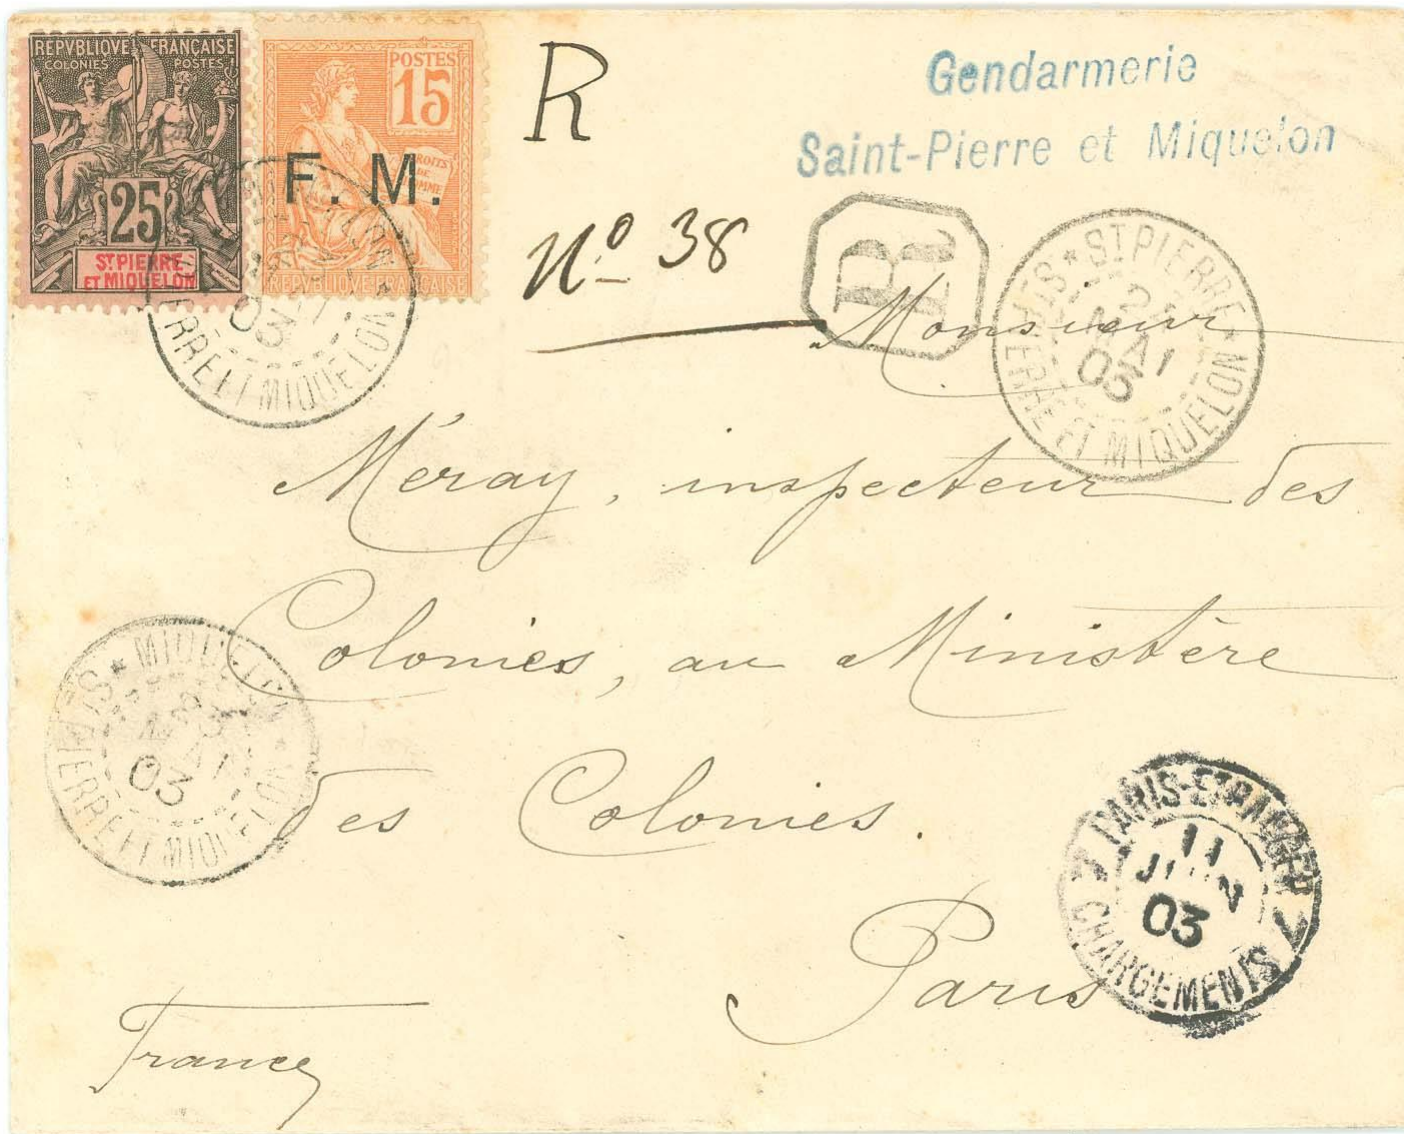 REPVBLIQVE FRANÇAISE
COLONIES POSTES
25
ST PIERRE
ET MIQUELON
POSTES
15
DROITS
DE
F. M.
REPVBLIQVE FRANÇAISE
R
No 38
Gendarmerie
Saint-Pierre et Miquelon
R
ST PIERRE
MAI
03
PIERRE ET MIQUELON
03
PIERRE ET MIQUELON
Monsieur
Méray, inspecteur des
Colonies, au Ministère
des Colonies.
Paris
France
MIQUELON
23
MAI
03
STS PIERRE ET MIQUELON
PARIS-ETRANGER
11
JUIN
03
CHARGEMENTS